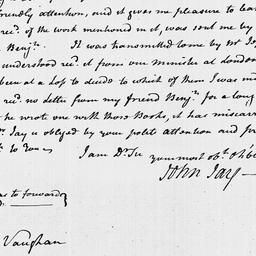 friendly attention, and it gives me pleasure to lea
rec.d of the work mentioned in it, was sent me by
Benj.n It was transmitted to me by Mr. Ja
understood rec.d it from our Minister at London
been at a Loss to decide to which of them I was in
rec.d no letter from my friend Benj.n for a long
he wrote one with those Books, it has miscar
Jay is obliged by your polite attention and pr
to You
I am Dr. Sir your most ob.t &
John Jay
to forward
Vaughan